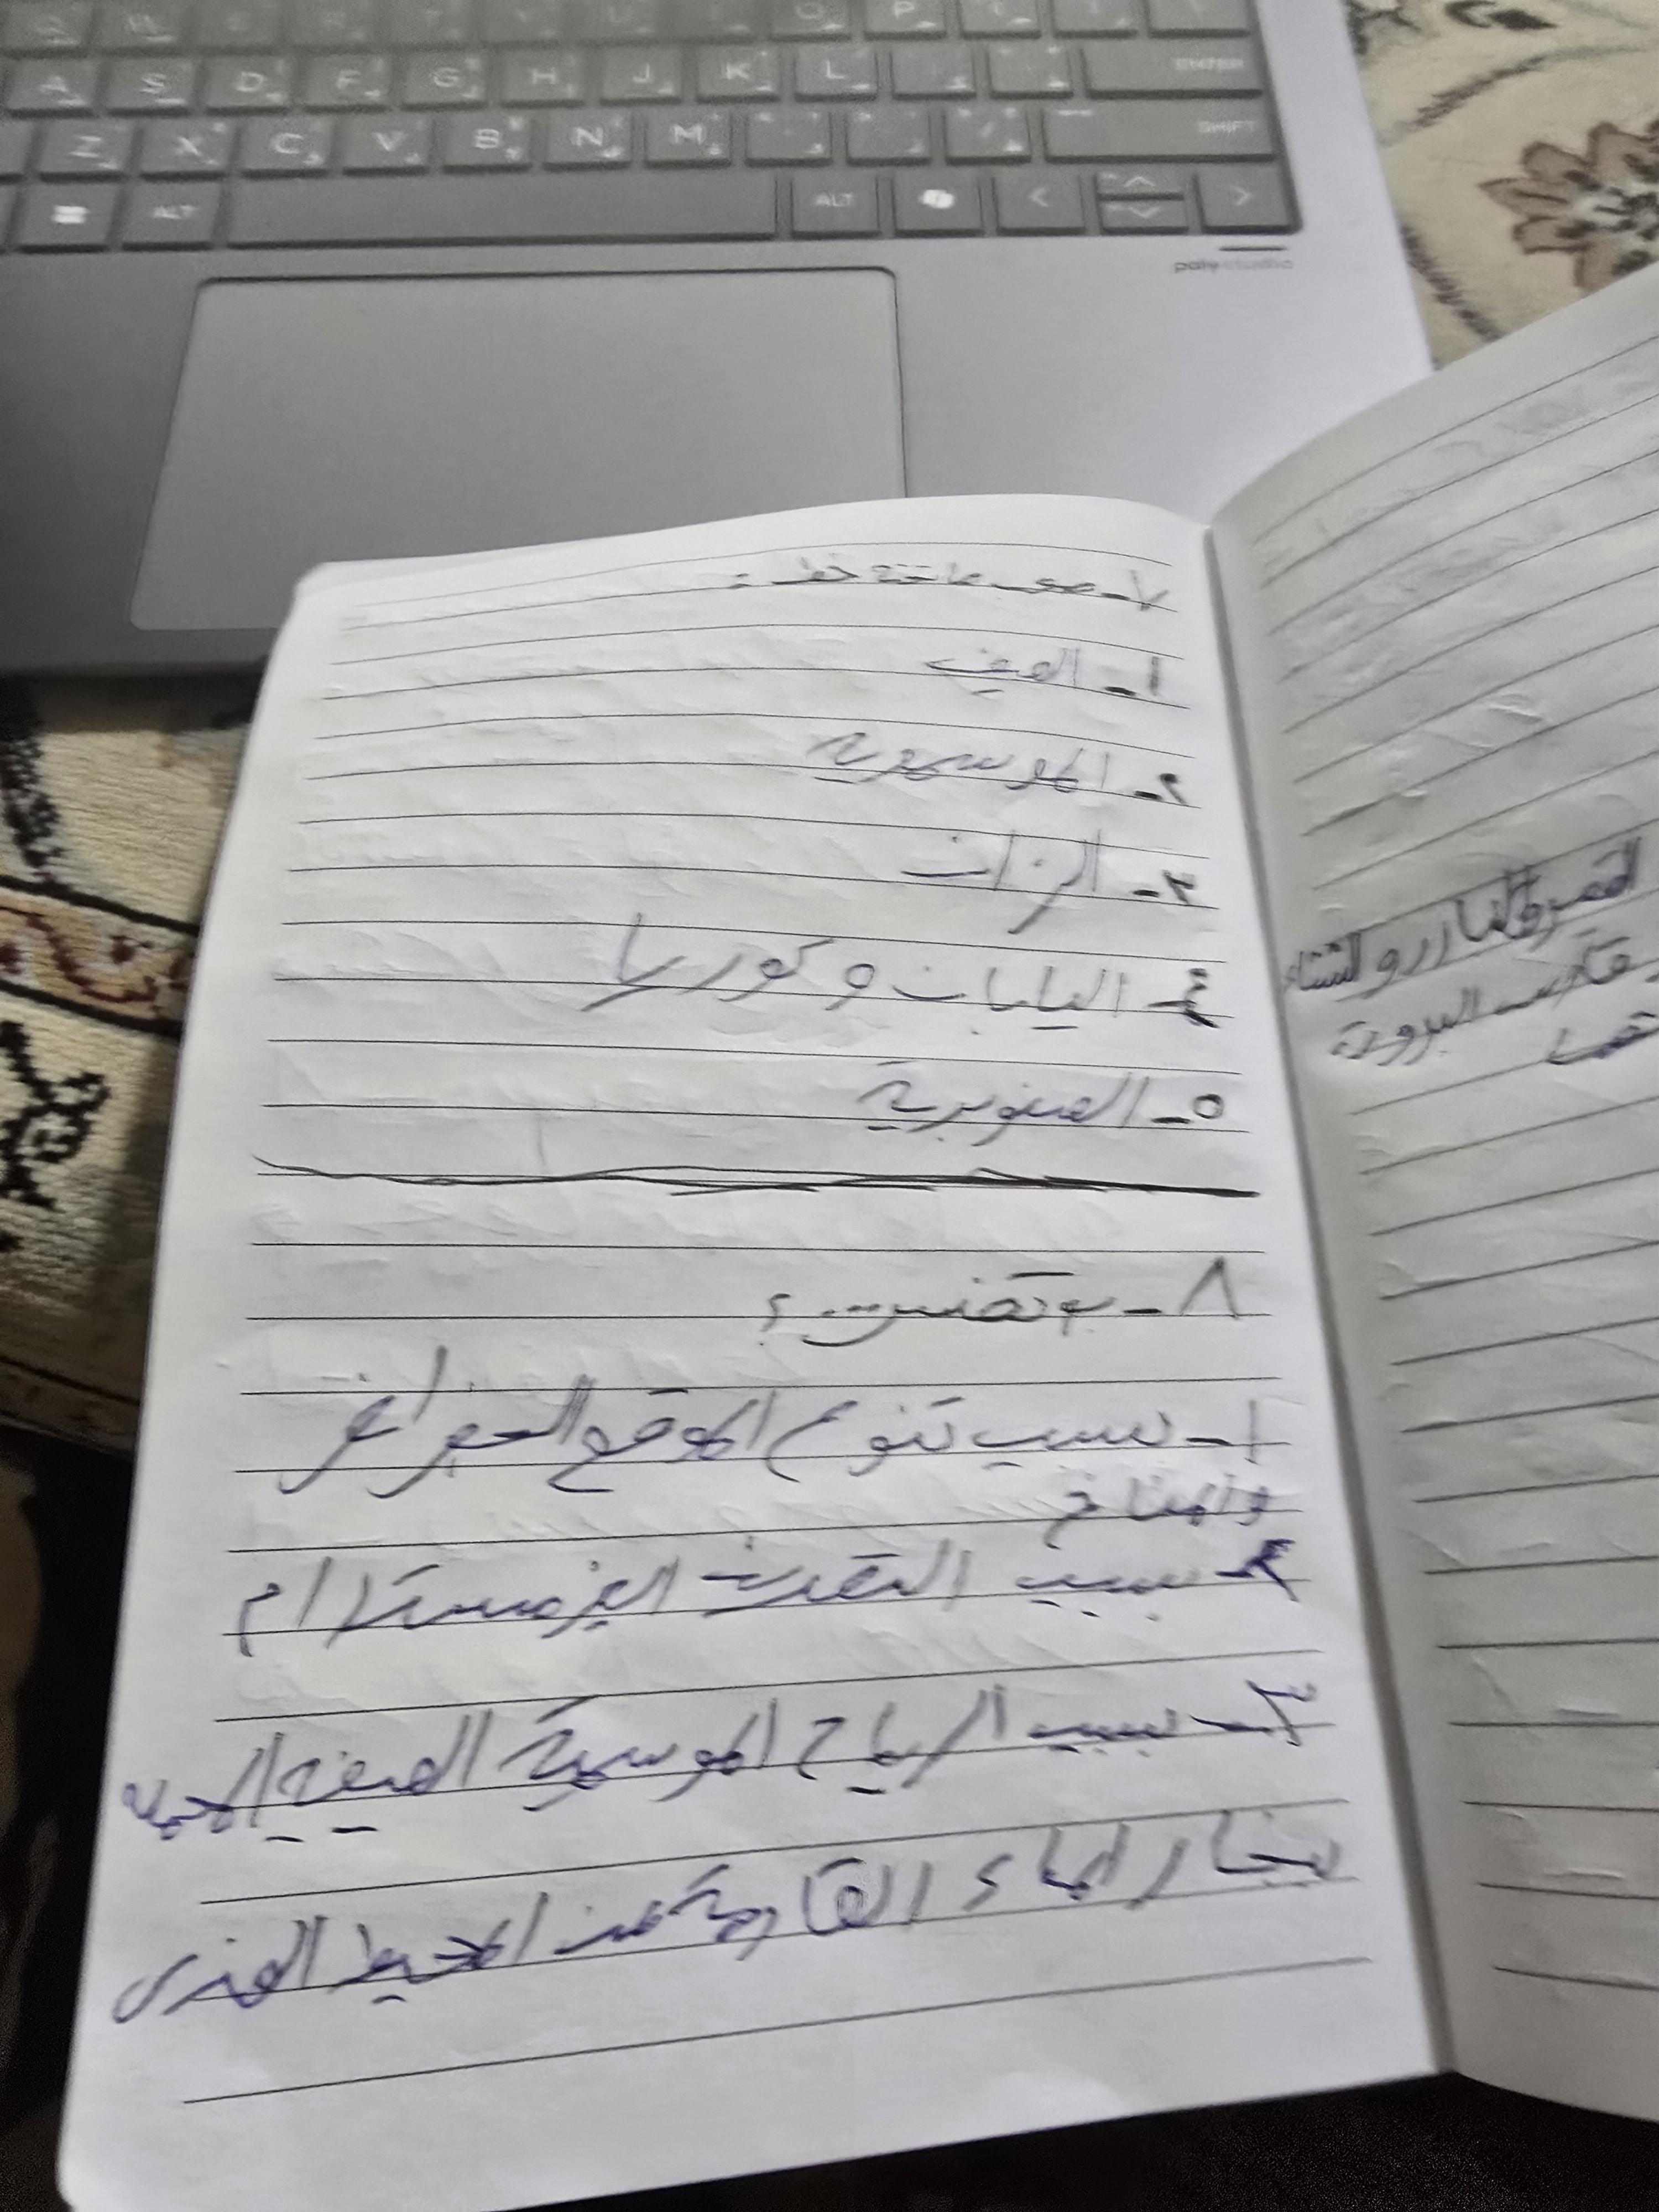 A S D F G H J K L ENTER
Z X C V B N M SHIFT
ALT ALT
poly studio
٧- صوب ما تحته خط :
١- الصيف
٢- الموسمية
٣- الزان
٤- اليابان وكوريا
٥- الصنوبرية
٨- بم تفسرين ؟
١- بسبب تنوع الموقع الجغرافي
والمناخ
٢- بسبب التعدين الغير مستدام
٣- بسبب الرياح الموسمية الصيفية المحملة
ببخار الماء القادمة من المحيط الهندي
والشتاء
البرودة